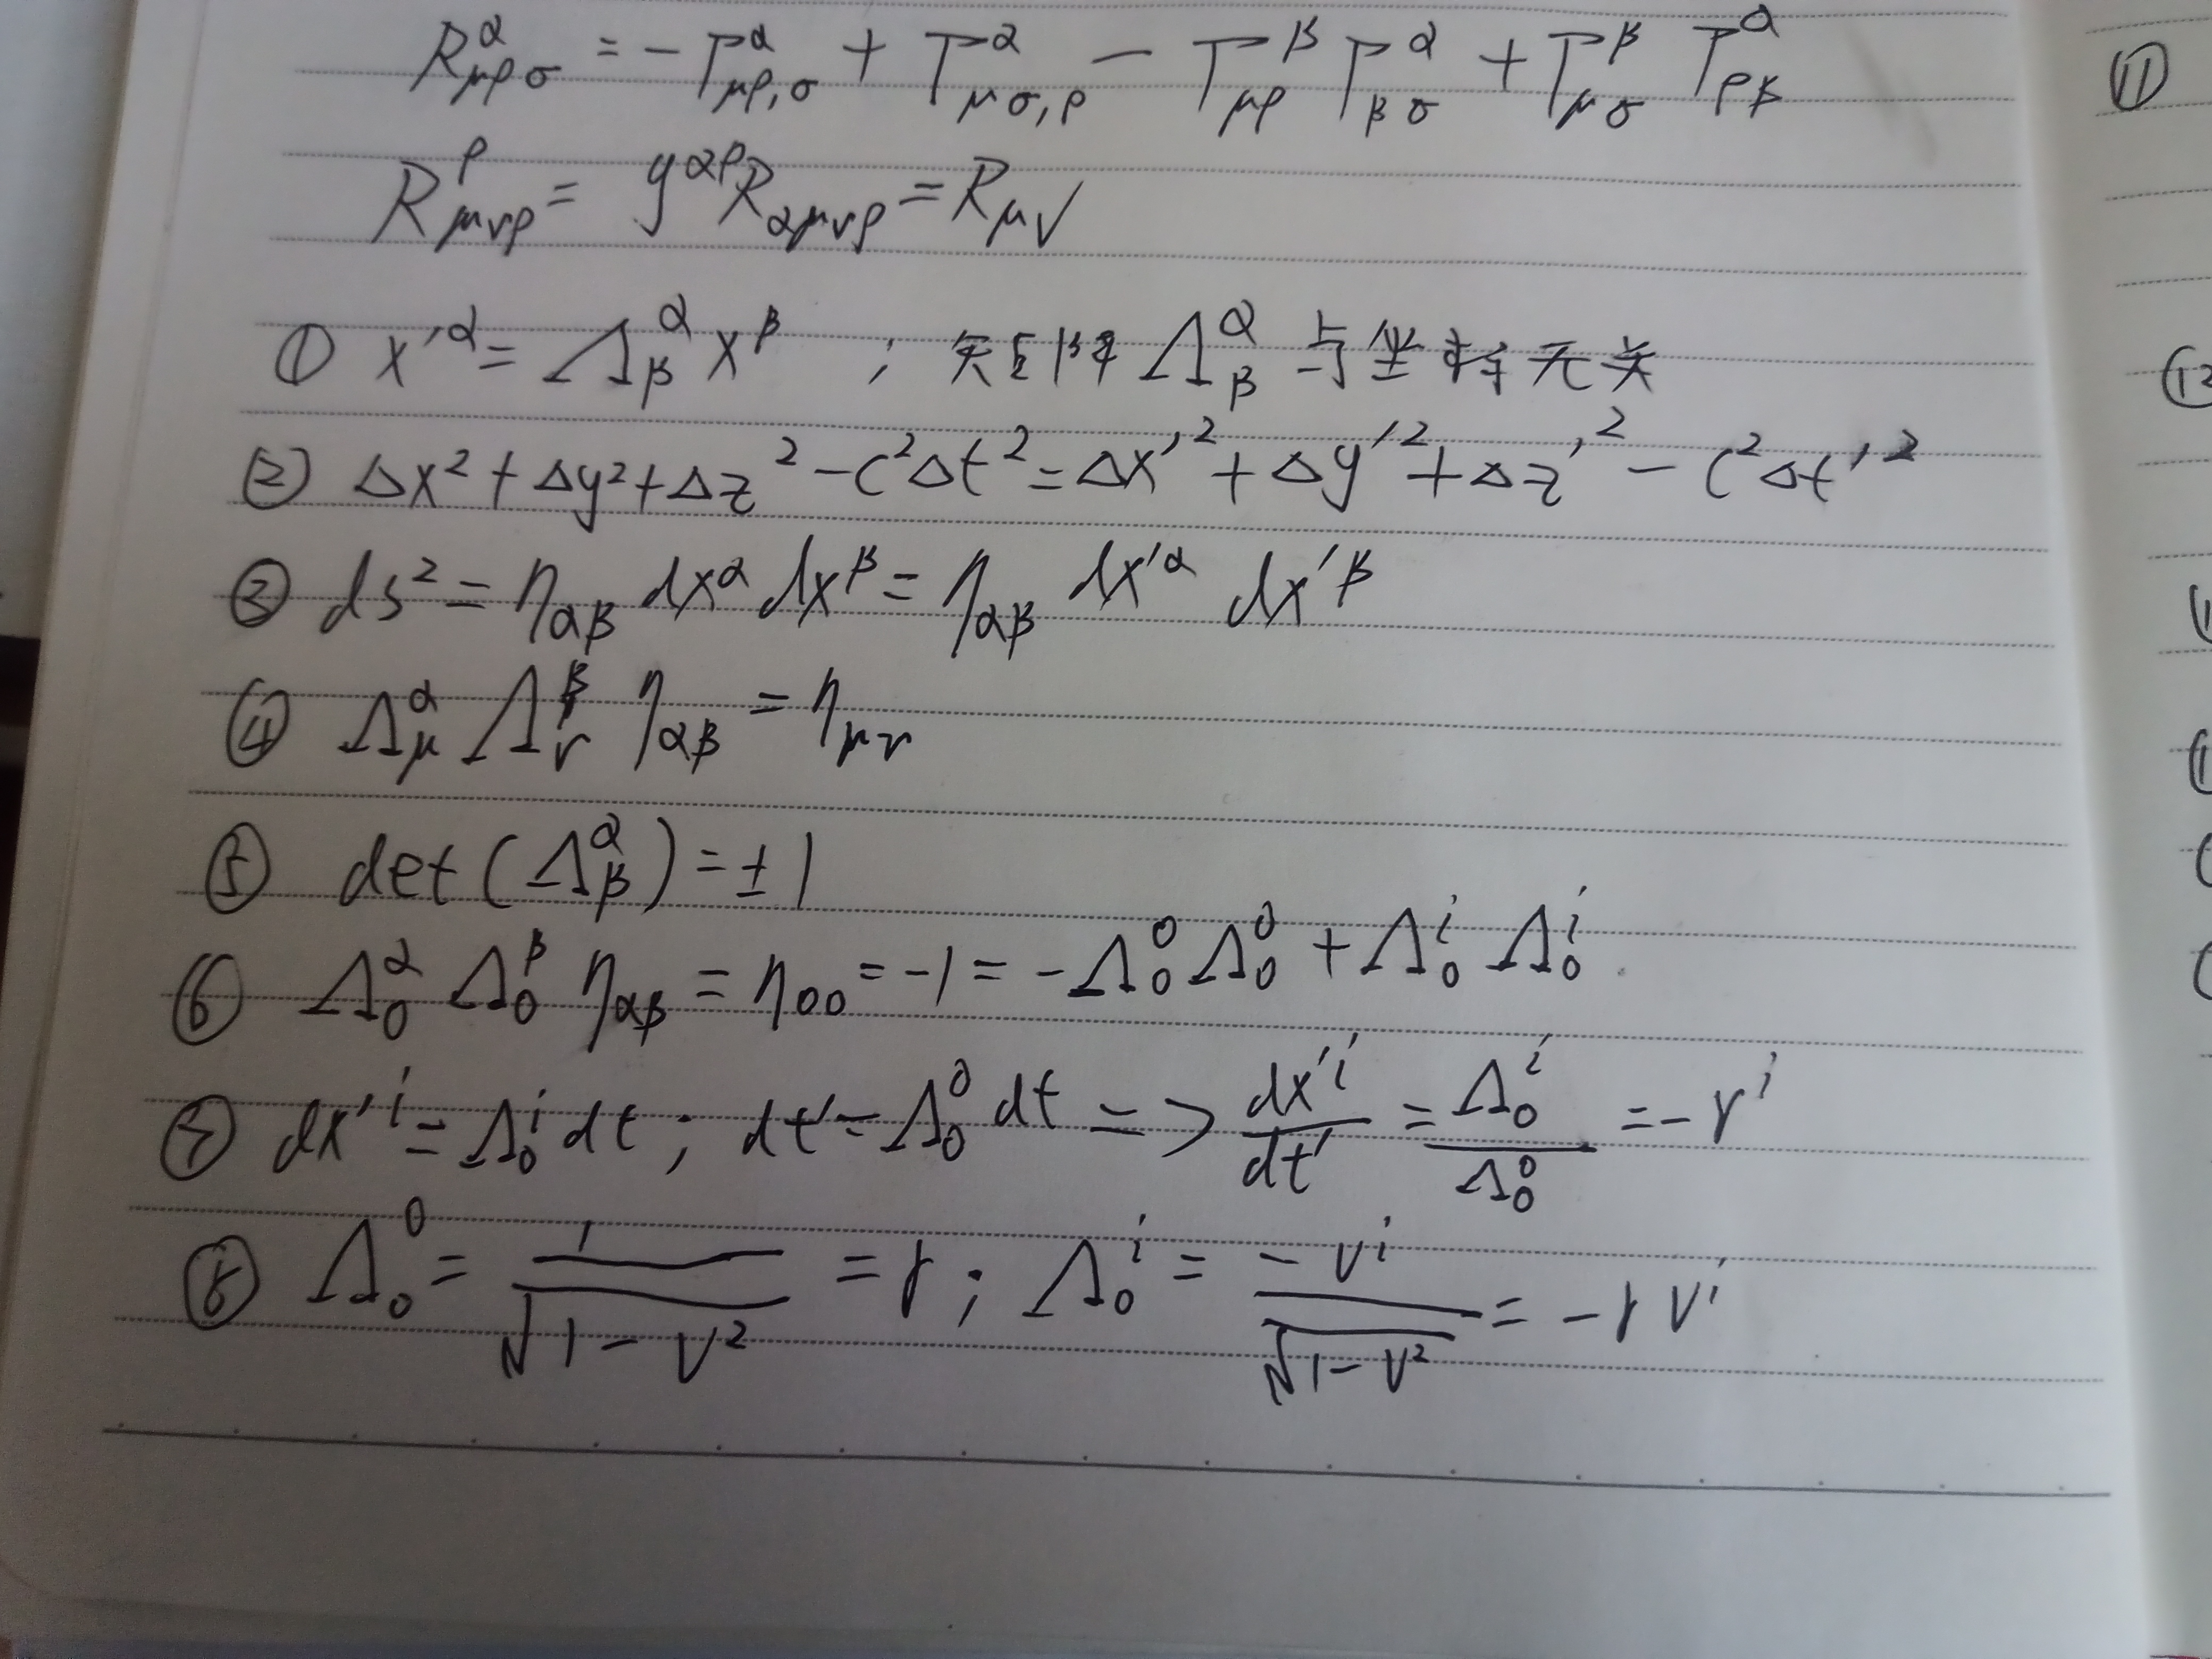 R^α_{μρσ} = −Γ^α_{μρ,σ} + Γ^α_{μσ,ρ} − Γ^β_{μρ} Γ^α_{βσ} + Γ^β_{μσ} Γ^α_{ρβ}
R^ρ_{μνρ} = g^{αρ} R_{αμνρ} = R_{μν}
① x'^α = Λ^α_β x^β ; 矩阵 Λ^α_β 与坐标无关
② Δx² + Δy² + Δz² − c²Δt² = Δx'² + Δy'² + Δz'² − c²Δt'²
③ ds² = η_{αβ} dx^α dx^β = η_{αβ} dx'^α dx'^β
④ Λ^α_μ Λ^β_ν η_{αβ} = η_{μν}
⑤ det(Λ^α_β) = ±1
⑥ Λ^α_0 Λ^β_0 η_{αβ} = η_{00} = −1 = −Λ^0_0 Λ^0_0 + Λ^i_0 Λ^i_0 .
⑦ dx'^i = Λ^i_0 dt ; dt' = Λ^0_0 dt => dx'^i/dt' = Λ^i_0/Λ^0_0 = −v^i
⑧ Λ^0_0 = 1/√(1−v²) = γ ; Λ^i_0 = −v^i/√(1−v²) = −γ v^i
⑪